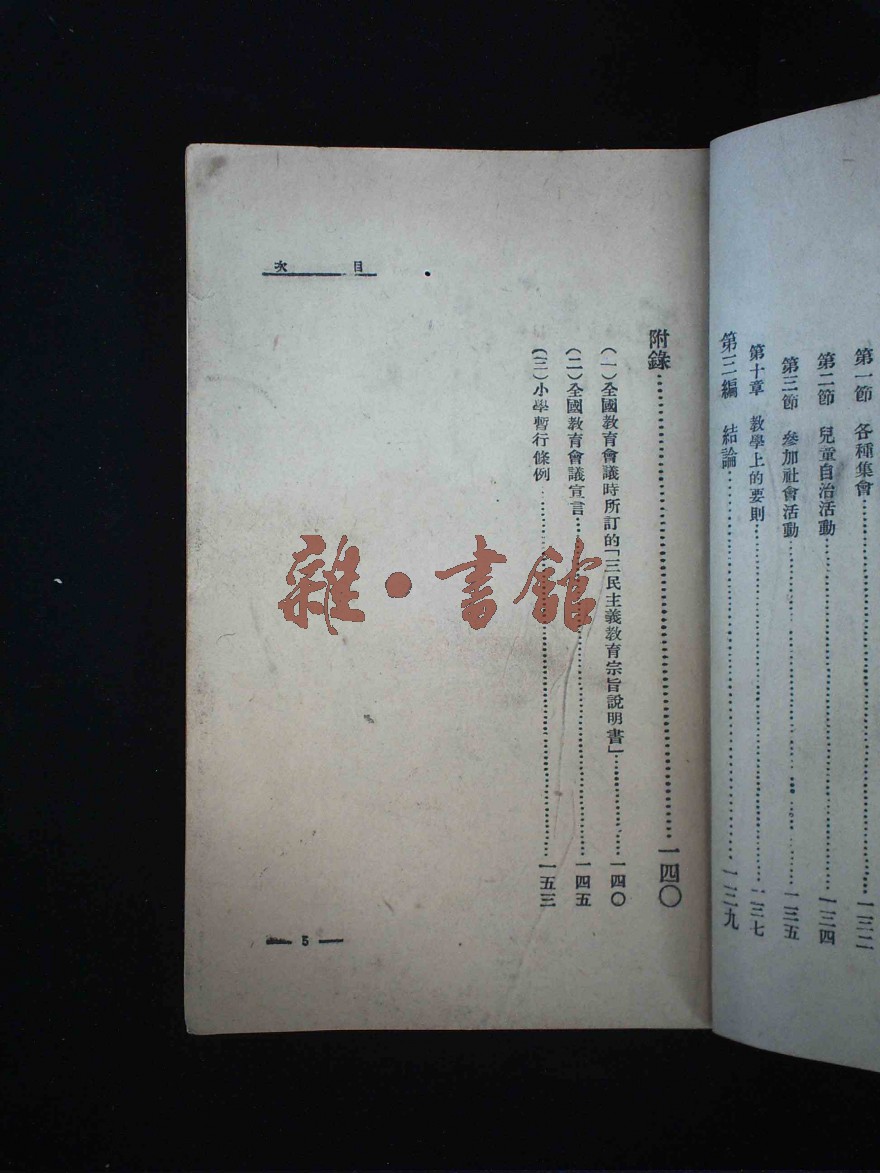 第一節　各種集會……一三二
第二節　兒童自治活動……一三四
第三節　參加社會活動……一三五
第十章　教學上的要則……一三七
第三編　結論……一三九
目次
附錄……一四〇
(一)全國教育會議時所訂的「三民主義教育宗旨說明書」……一四〇
(二)全國教育會議宣言……一四五
(三)小學暫行條例……一五三
5
雜·書館